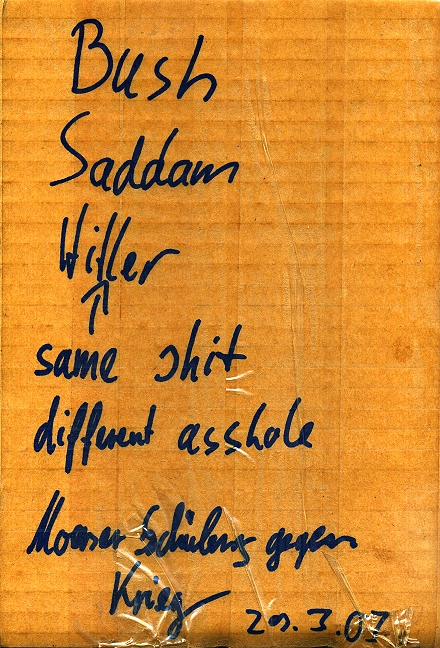 Bush
Saddam
Hitler
same shit
different asshole
gegen
Krieg 20. 3. 03